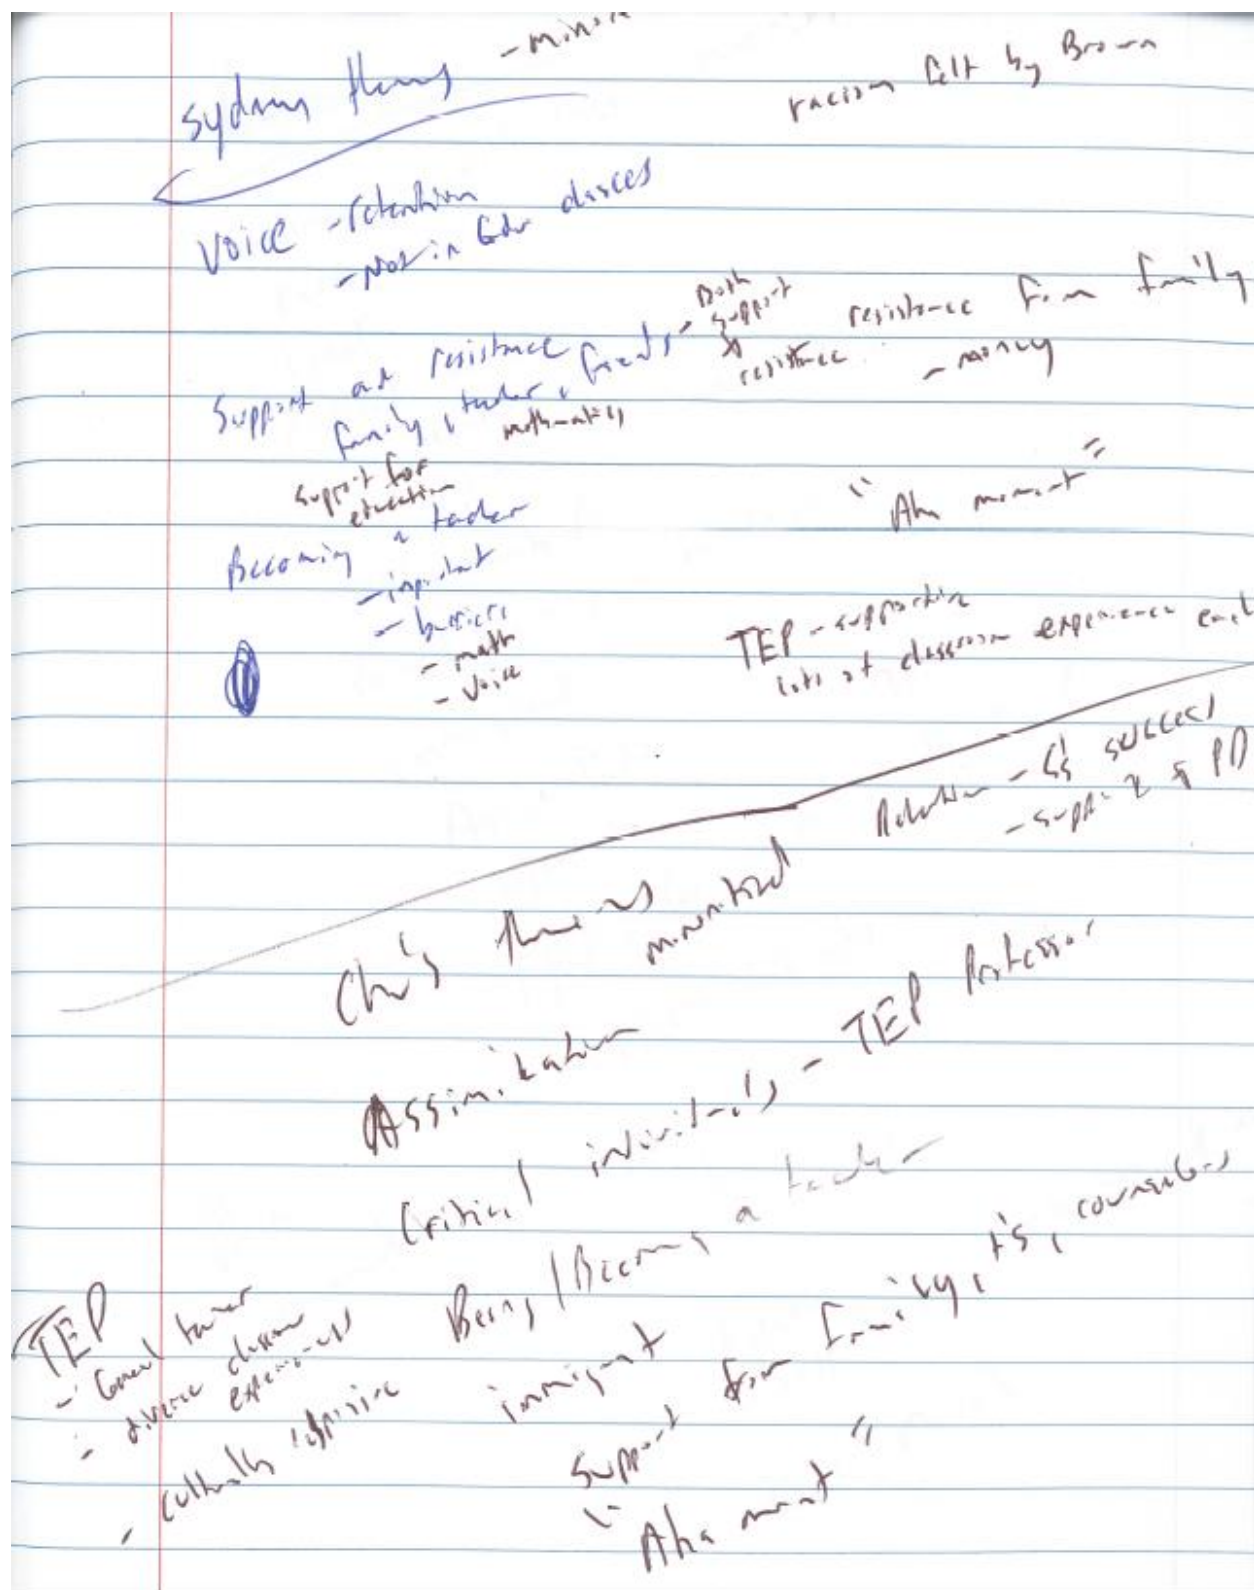 - minori
racism felt by Brown
voice - retention
- Not in Edu classes
Support and resistance
family, teacher, friends - Both
support
&
resistance
mathematics
resistance from family
- money
support for
education
"Aha moment"
Becoming a teacher
- important
- barriers
- math
- voice
TEP - supportive
lots of classroom experience
Retention - Ss' success
- support & PD
themes
minoritized
Assimilation
Critical individuals - TEP Professor
Being/Becoming a teacher
immigrant
Support from family, t's, counselors
"Aha moment"
TEP
- diverse classroom
experiences
- culturally responsive